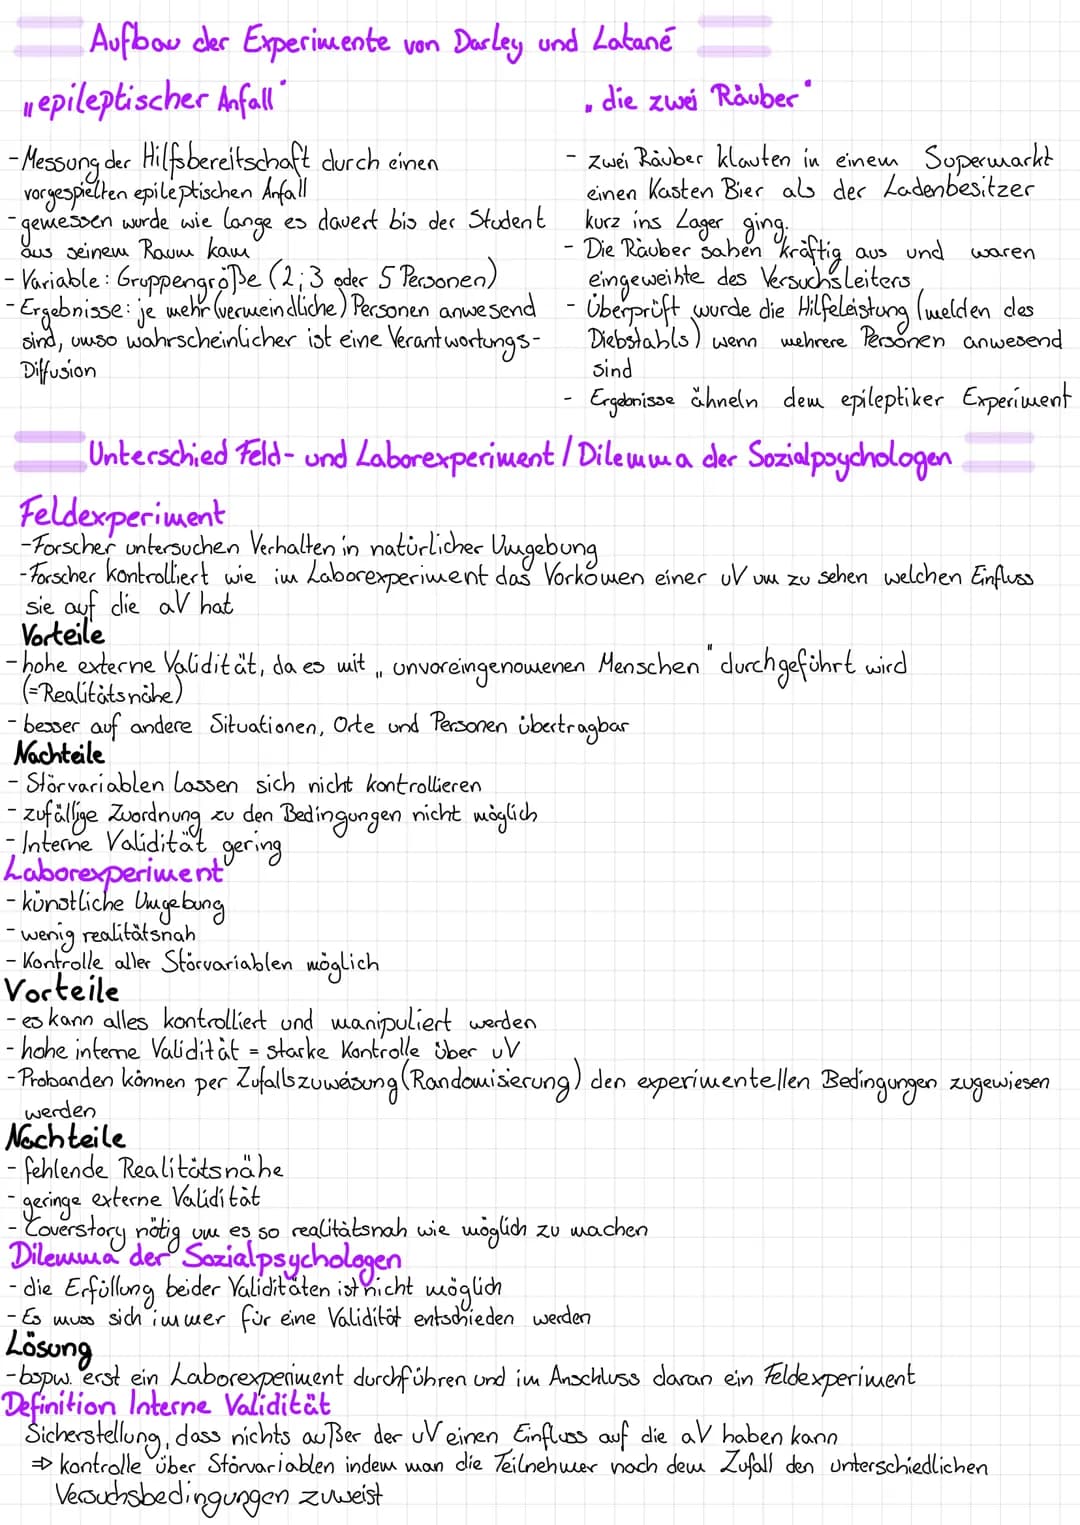 Aufbau der Experimente von Darley und Latané
„epileptischer Anfall"
- Messung der Hilfsbereitschaft durch einen
vorgespielten epileptischen Anfall
- gemessen wurde wie lange es dauert bis der Student
aus seinem Raum kam
- Variable: Gruppengröße (2; 3 oder 5 Personen)
- Ergebnisse: je mehr (vermeindliche) Personen anwesend
sind, umso wahrscheinlicher ist eine Verantwortungs-
Diffusion
„die zwei Räuber"
- zwei Räuber klauten in einem Supermarkt
einen Kasten Bier als der Ladenbesitzer
kurz ins Lager ging.
- Die Räuber sahen kräftig aus und waren
eingeweihte des Versuchsleiters
- Überprüft wurde die Hilfeleistung (melden des
Diebstahls) wenn mehrere Personen anwesend
sind
- Ergebnisse ähneln dem epileptiker Experiment
Unterschied Feld- und Laborexperiment / Dilemma der Sozialpsychologen
Feldexperiment
- Forscher untersuchen Verhalten in natürlicher Umgebung
- Forscher kontrolliert wie im Laborexperiment das Vorkommen einer uV um zu sehen welchen Einfluss
sie auf die aV hat
Vorteile
- hohe externe Validität, da es mit „unvoreingenommenen Menschen" durchgeführt wird
(=Realitätsnähe)
- besser auf andere Situationen, Orte und Personen übertragbar
Nachteile
- Störvariablen lassen sich nicht kontrollieren
- zufällige Zuordnung zu den Bedingungen nicht möglich
- Interne Validität gering
Laborexperiment
- künstliche Umgebung
- wenig realitätsnah
- Kontrolle aller Störvariablen möglich
Vorteile
- es kann alles kontrolliert und manipuliert werden
- hohe interne Validität = starke Kontrolle über uV
- Probanden können per Zufallszuweisung (Randomisierung) den experimentellen Bedingungen zugewiesen
werden
Nachteile
- fehlende Realitätsnähe
- geringe externe Validität
- Coverstory nötig um es so realitätsnah wie möglich zu machen
Dilemma der Sozialpsychologen
- die Erfüllung beider Validitäten ist nicht möglich
- Es muss sich immer für eine Validität entschieden werden
Lösung
- bspw. erst ein Laborexperiment durchführen und im Anschluss daran ein Feldexperiment
Definition Interne Validität
Sicherstellung, dass nichts außer der uV einen Einfluss auf die aV haben kann
⇒ kontrolle über Störvariablen indem man die Teilnehmer nach dem Zufall den unterschiedlichen
Versuchsbedingungen zuweist